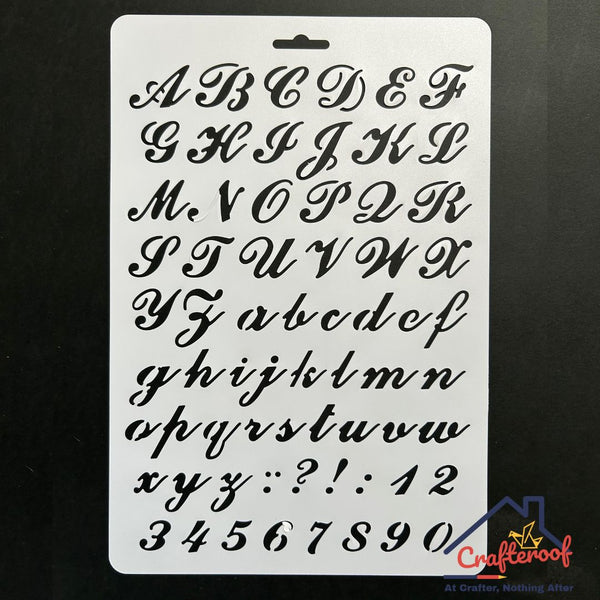 A B C D E F
G H I J K L
M N O P Q R
S T U V W X
Y Z a b c d e f
g h i j k l m n
o p q r s t u v w
x y z : ? ! : 1 2
3 4 5 6 7 8 9 0
Crafteroof
At Crafter, Nothing After